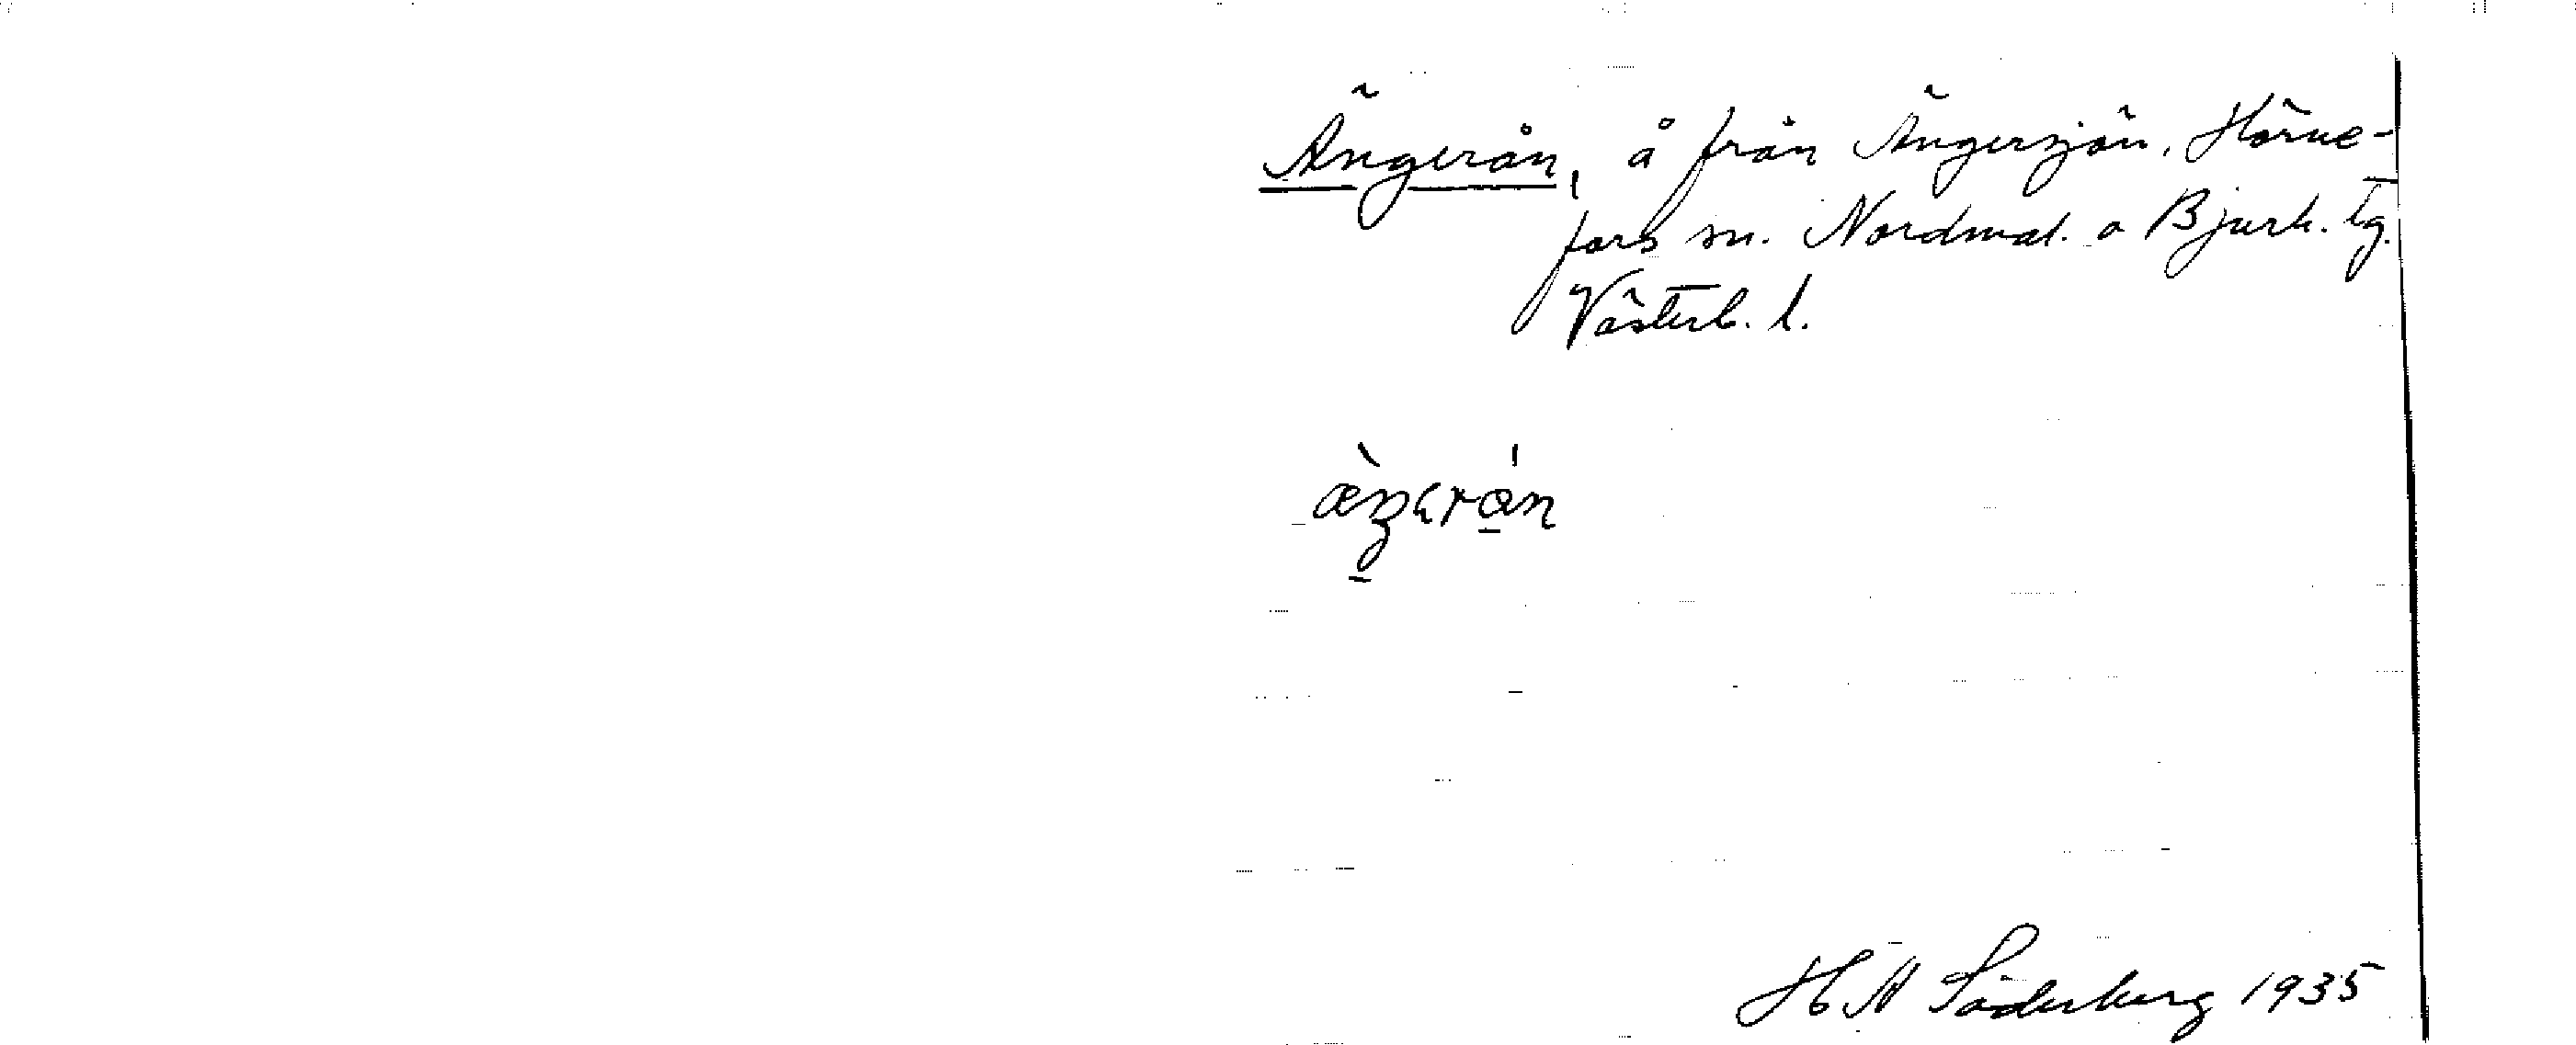 Ängerån, å från Ängersjön, Hörne-
fors sn. Nordmal. o Bjurh. tg.
Västerb. l.
æ̀ŋɐrån
H A Söderberg 1935